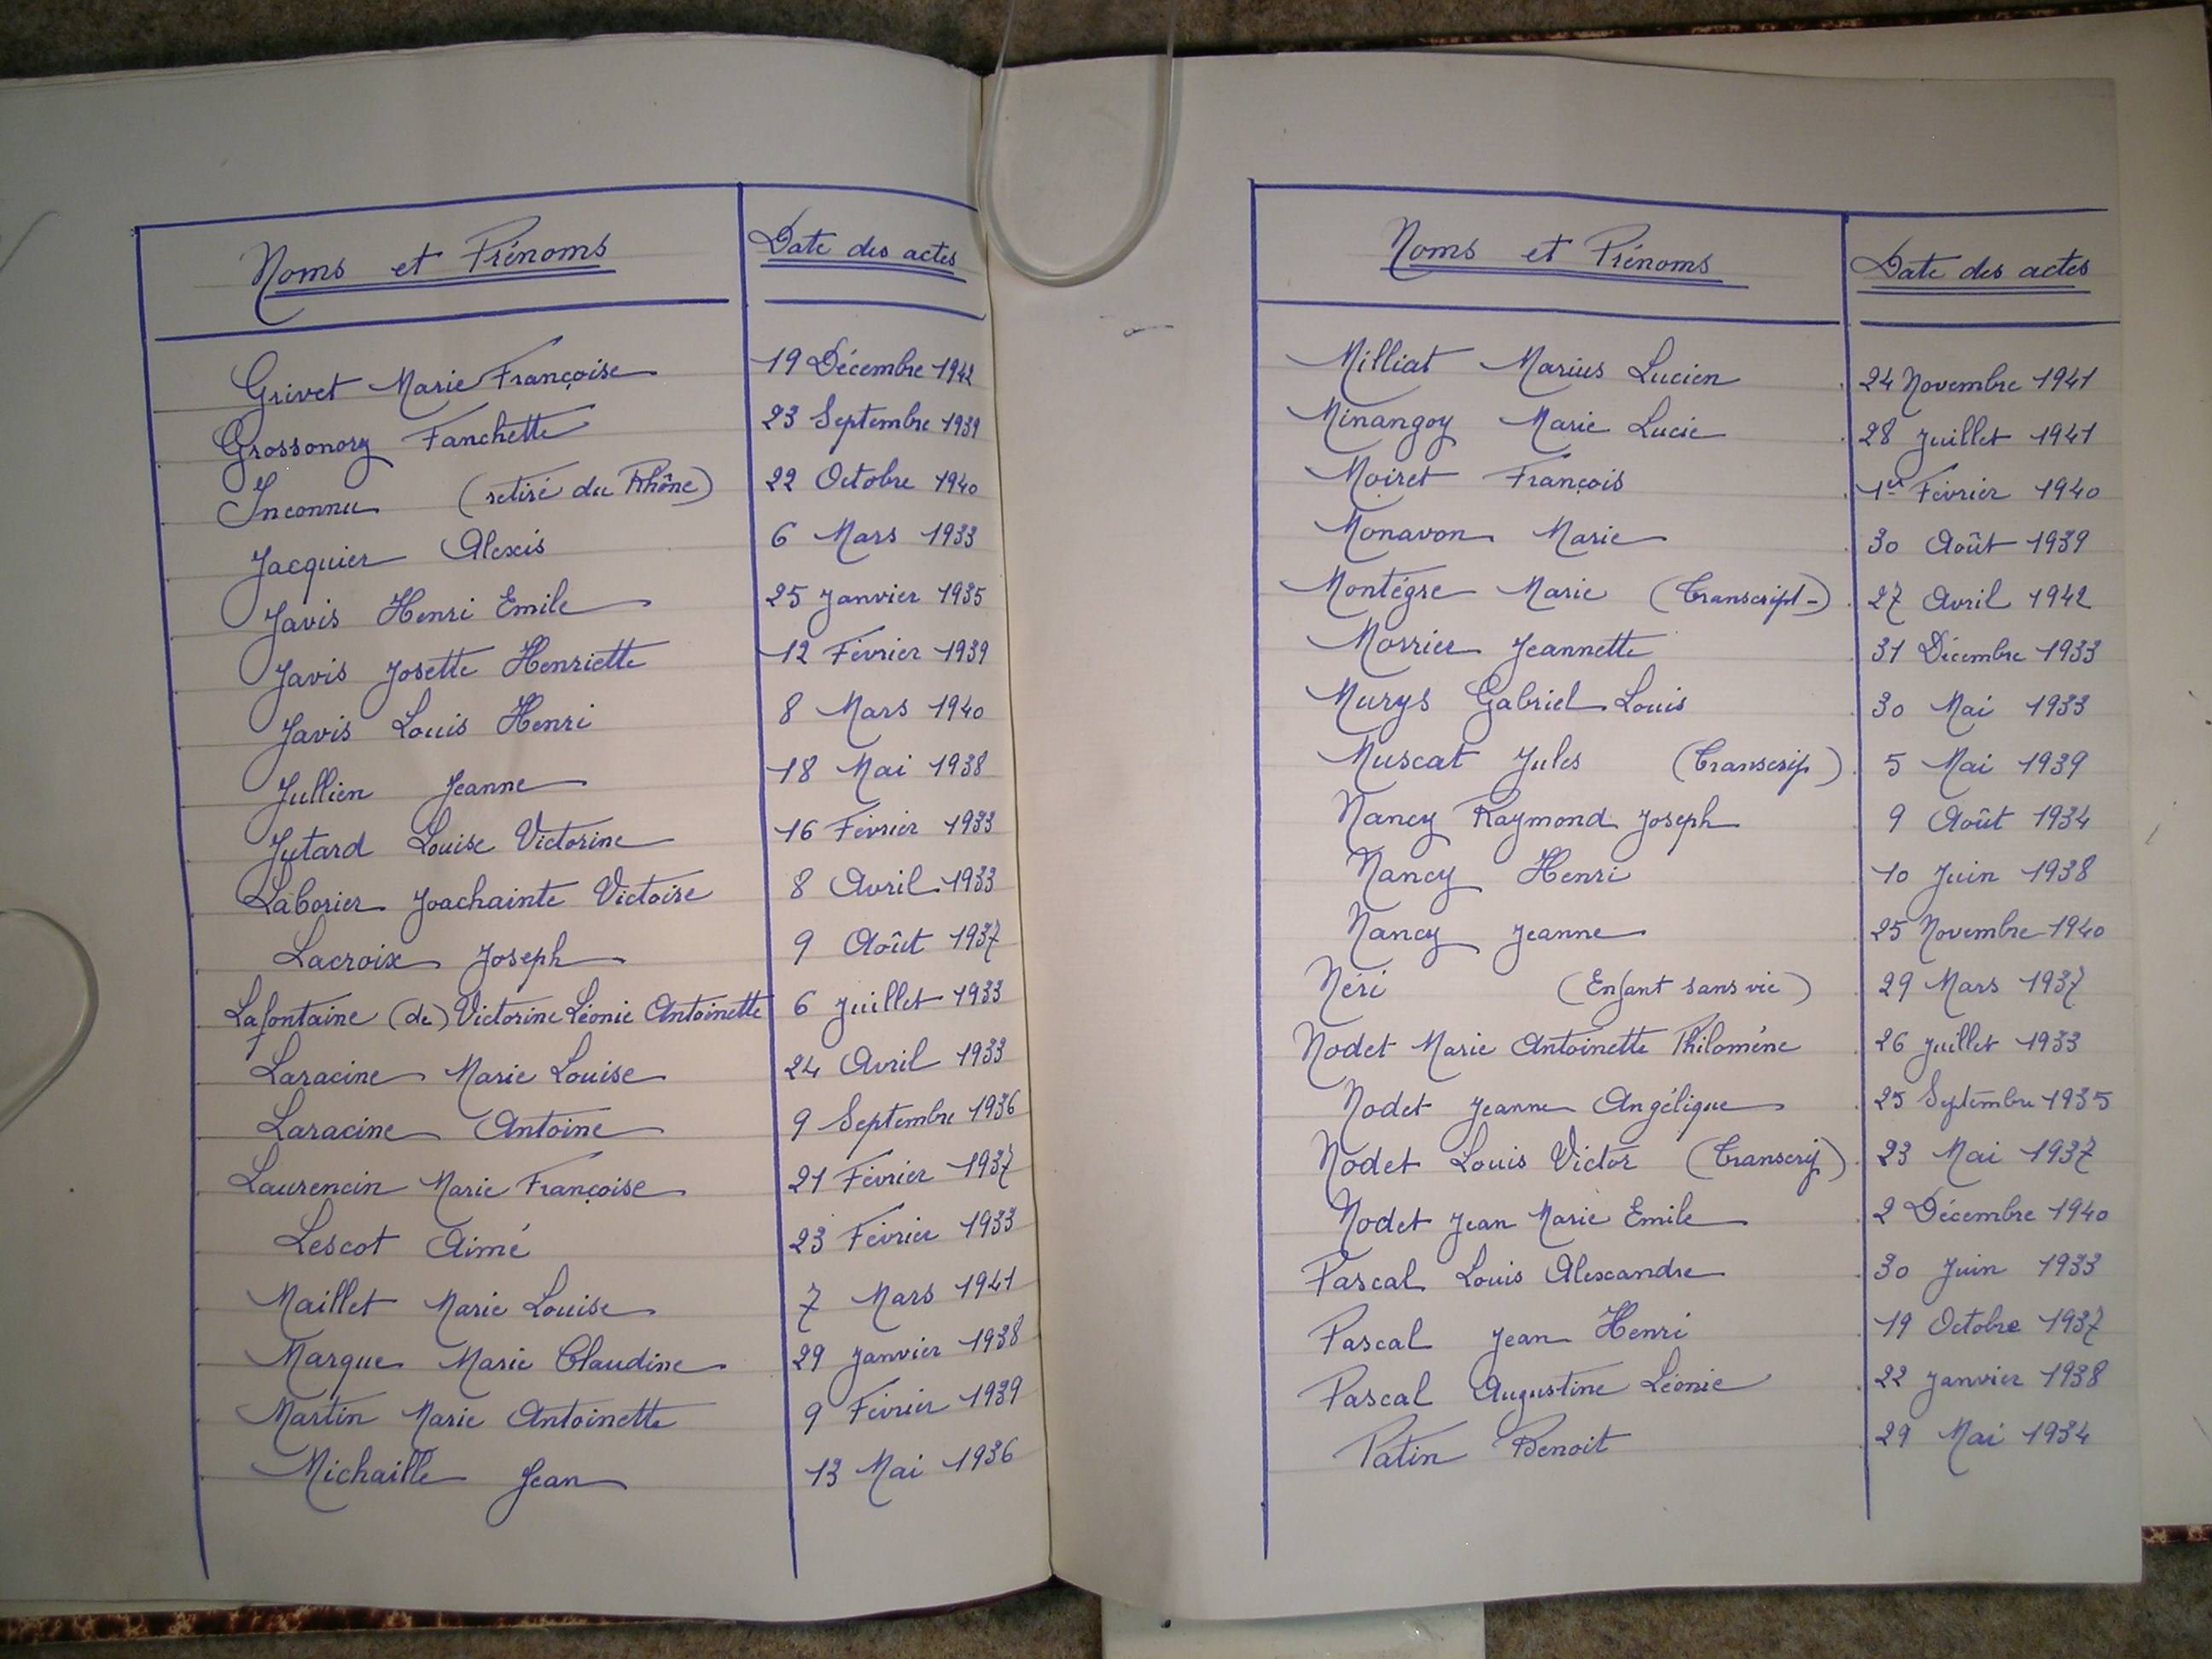 Noms et Prénoms Date des actes
Grivet Marie Françoise 19 Décembre 1942
Grossonory Fanchette 23 Septembre 1939
Inconnu (retiré du Rhône) 22 Octobre 1940
Jacquier Alexis 6 Mars 1933
Javis Henri Emile 25 Janvier 1935
Javis Josette Henriette 12 Février 1939
Javis Louis Henri 8 Mars 1940
Jullien Jeanne 18 Mai 1938
Jutard Louise Victorine 16 Février 1933
Laborier Joachainte Victoire 8 Avril 1933
Lacroix Joseph 9 Août 1937
Lafontaine (de) Victorine Léonie Antoinette 6 Juillet 1933
Laracine Marie Louise 24 Avril 1933
Laracine Antoine 9 Septembre 1936
Laurencin Marie Françoise 21 Février 1937
Lescot Aimé 23 Février 1933
Maillet Marie Louise 7 Mars 1941
Marque Marie Claudine 29 Janvier 1938
Martin Marie Antoinette 9 Février 1939
Michaille Jean 13 Mai 1936
Noms et Prénoms Date des actes
Milliat Marius Lucien 24 Novembre 1941
Minangoy Marie Lucie 28 Juillet 1941
Moiret François 1er Février 1940
Monavon Marie 30 Août 1939
Montégre Marie (Transcript-) 27 Avril 1942
Morrier Jeannette 31 Décembre 1933
Murys Gabriel Louis 30 Mai 1933
Muscat Jules (Transcrip) 5 Mai 1939
Nancy Raymond Joseph 9 Août 1934
Nancy Henri 10 Juin 1938
Nancy Jeanne 25 Novembre 1940
Néri (Enfant sans vie) 29 Mars 1937
Nodet Marie Antoinette Philomène 26 Juillet 1933
Nodet Jeanne Angélique 25 Septembre 1935
Nodet Louis Victor (Transcrip) 23 Mai 1937
Nodet Jean Marie Emile 2 Décembre 1940
Pascal Louis Alexandre 30 Juin 1933
Pascal Jean Henri 19 Octobre 1937
Pascal Augustine Léonie 22 Janvier 1938
Patin Benoit 29 Mai 1934